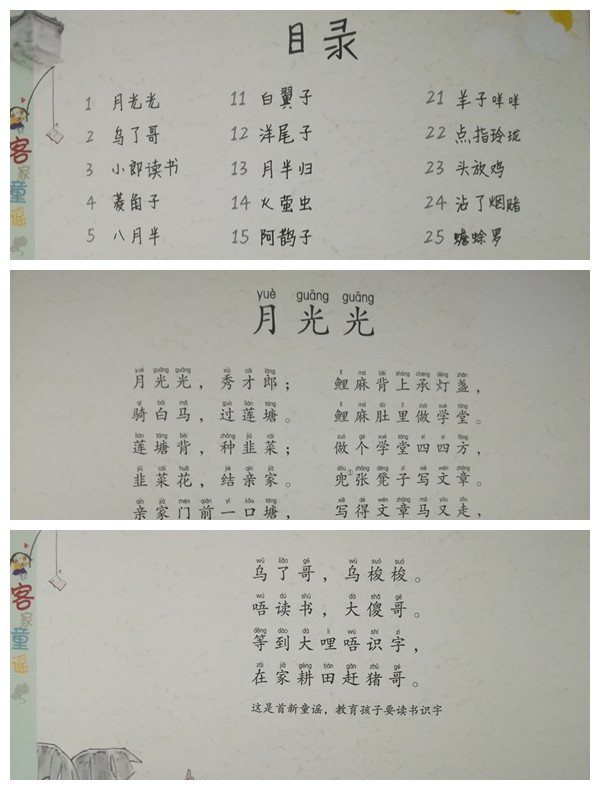 目录
1 月光光
2 乌了哥
3 小郎读书
4 菱角子
5 八月半
11 白翼子
12 洋尾子
13 月半归
14 火萤虫
15 阿鹊子
21 羊子咩咩
22 点指玲珑
23 头放鸡
24 沾了烟赌
25 蟾蜍罗
客家童谣
yuè guāng guāng
月光光
yuè guāng guāng xiù cái láng
月光光，秀才郎；
qí bái mǎ guò lián táng
骑白马，过莲塘。
lián táng bèi zhòng jiǔ cài
莲塘背，种韭菜；
jiǔ cài huā jié qìn jiā
韭菜花，结亲家。
qìn jiā mén qián yì kǒu táng
亲家门前一口塘，
lǐ má bèi shàng chéng dēng zhǎn
鲤麻背上承灯盏，
lǐ má dù lǐ zuò xué táng
鲤麻肚里做学堂。
zuò gè xué táng sì sì fāng
做个学堂四四方，
dōu zhāng dèng zǐ xiě wén zhāng
兜①张凳子写文章。
xiě dé wén zhāng mǎ yòu zǒu
写得文章马又走，
客家童谣
wū liǎo gē wū suō suō
乌了哥，乌梭梭。
wú dú shū dà shǎ gē
唔读书，大傻哥。
děng dào dà li wú shí zì
等到大哩唔识字，
zài jiā gēng tián gǎn zhū gē
在家耕田赶猪哥。
这是首新童谣，教育孩子要读书识字